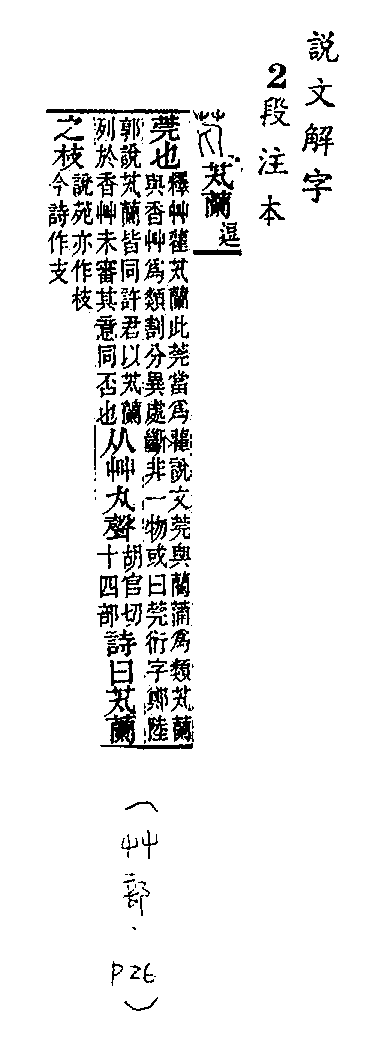 説文解字
2段注本
芄蘭逗
莞也釋艸雚芄蘭此莞當爲雚說文莞與蘭蒲爲類芄蘭
與香艸爲類割分異處斷非一物或曰莞衍字鄭陸
郭說芄蘭皆同許君以芄蘭
列於香艸未審其意同否也
从艸丸聲胡官切
十四部
詩曰芄蘭
之枝說苑亦作枝
今詩作支
(艸部.P26)